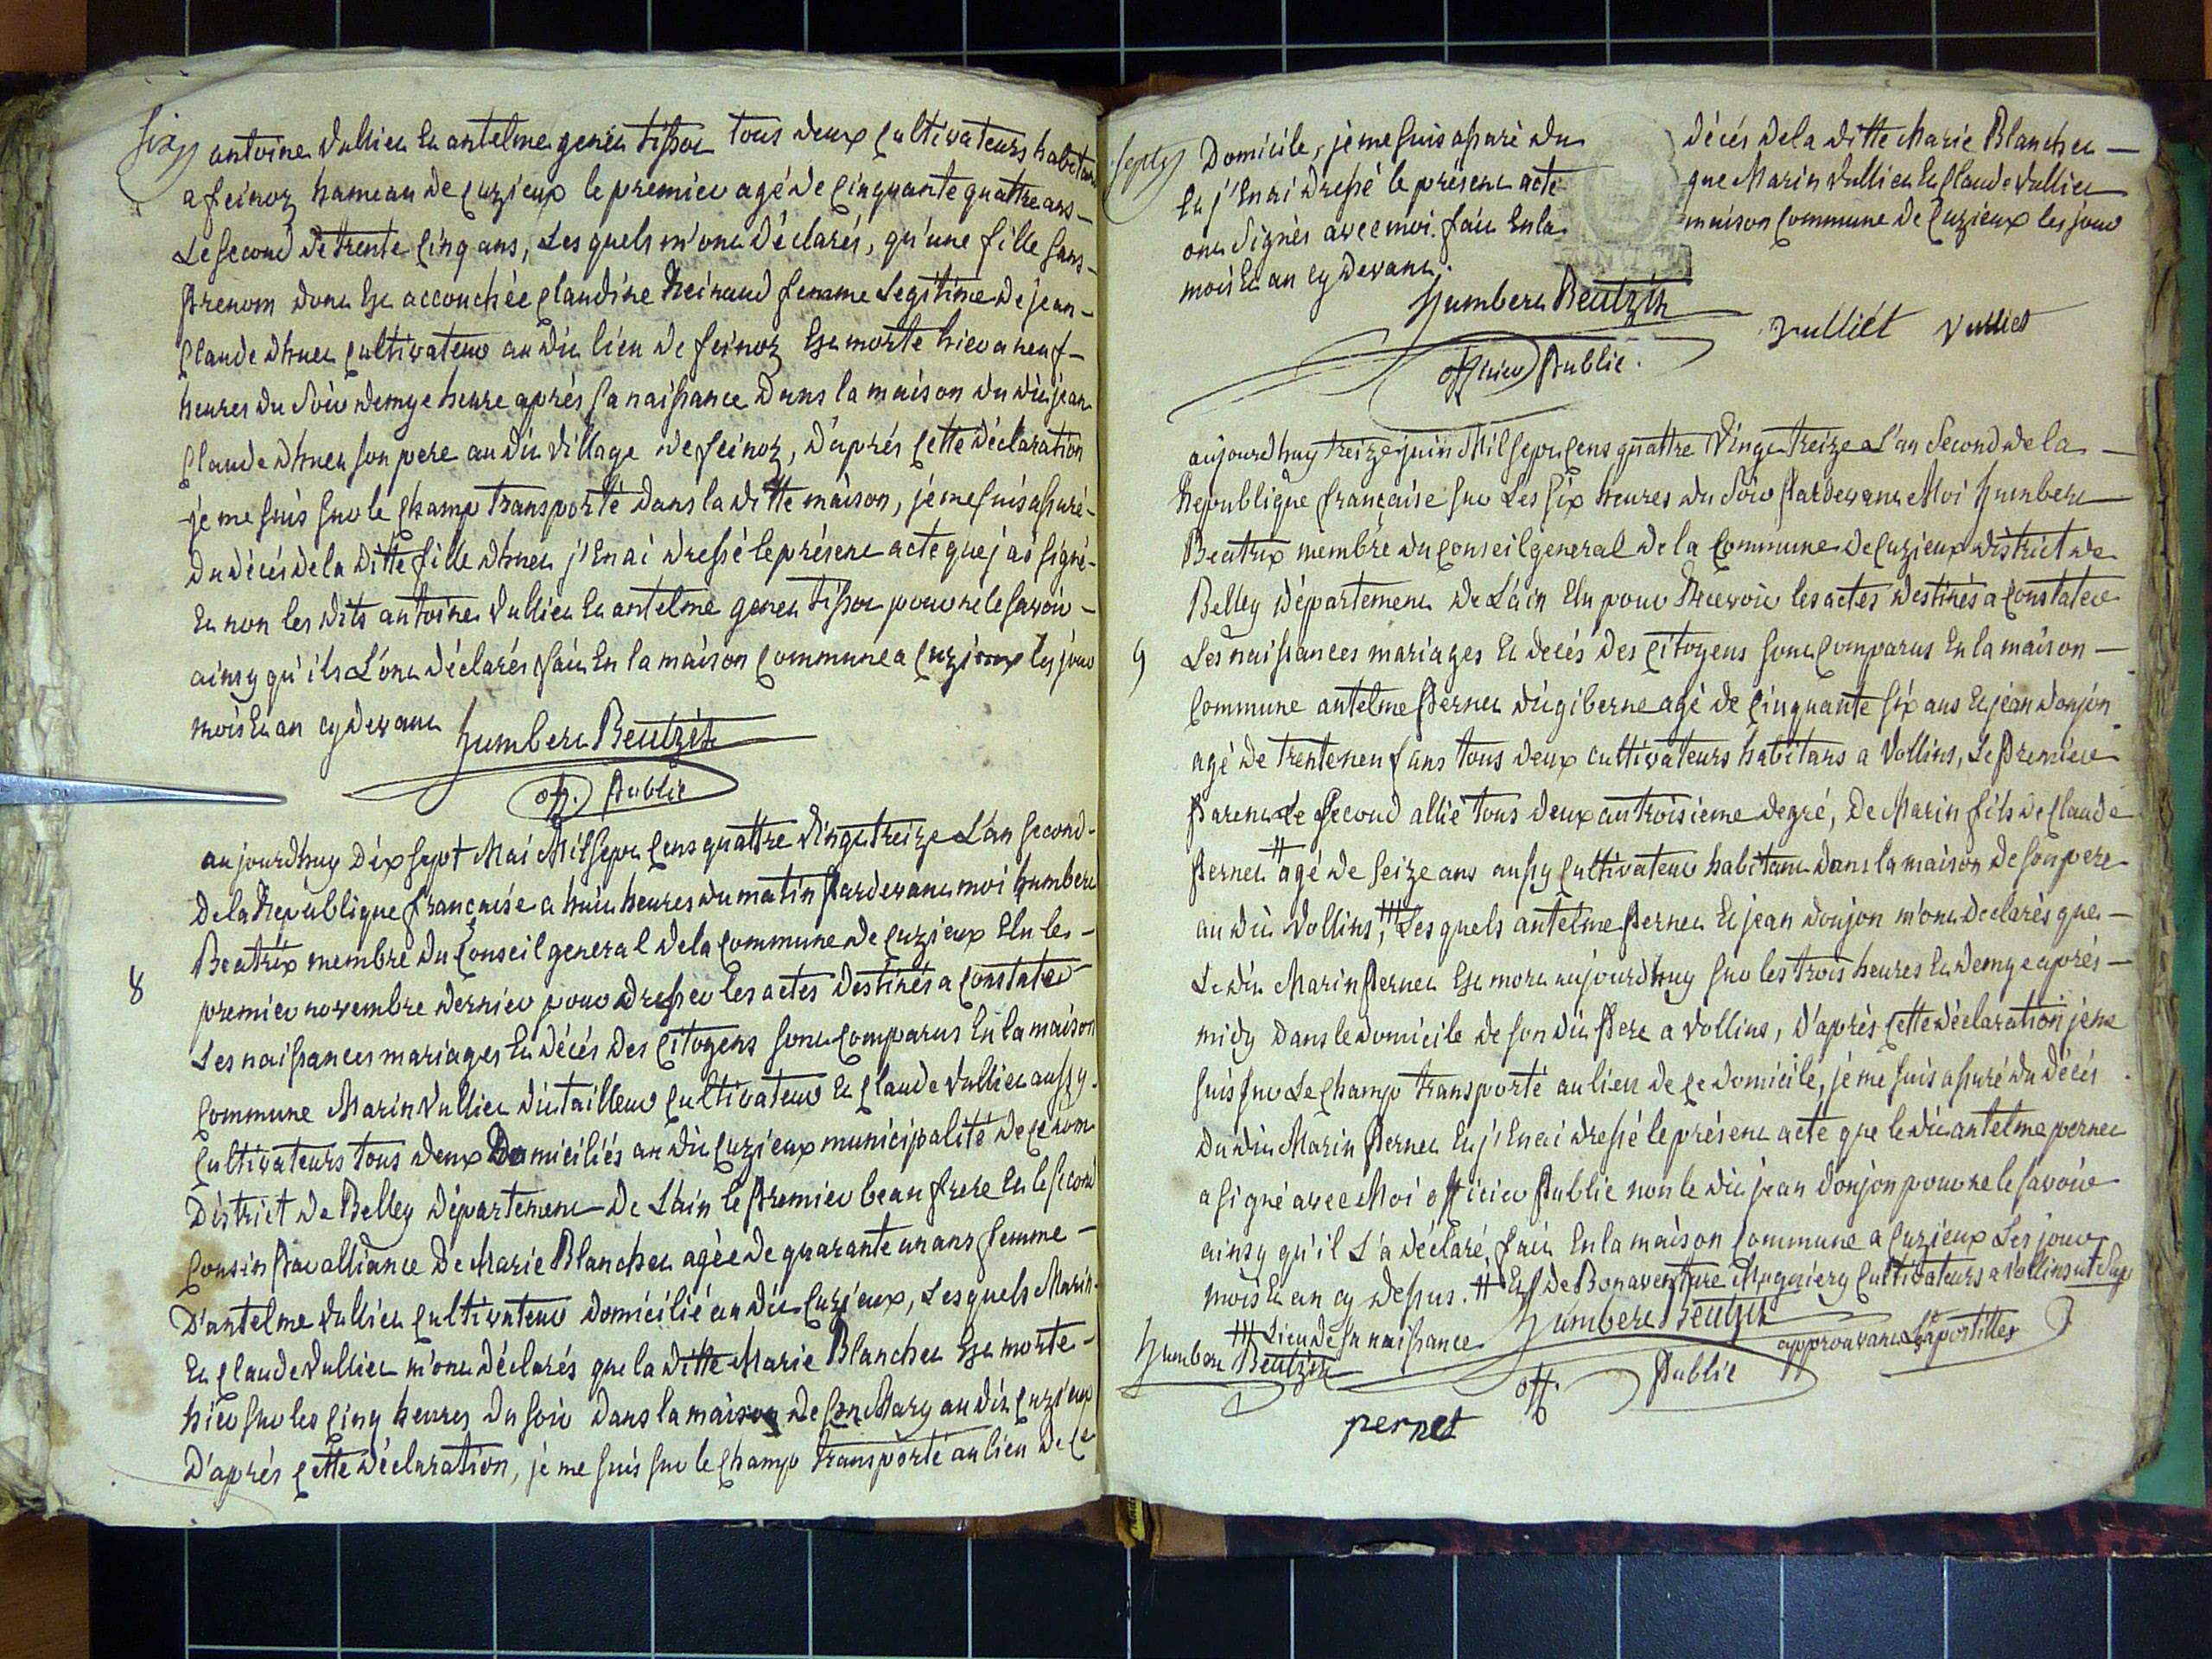 Six
antoine Vulliet Et antelme genet tissot tous deux Cultivateurs habitans
a feinoz hameau de Cuzieux le premier agé de Cinquante quattre ans
Le Second de trente Cinq ans, Lesquels m'ont Déclarés, qu'une fille sans
Prenom dont Est accouchée Claudine Reinaud femme Legitime de jean
Claude cultivateur au dit lieu de feinoz Est morte hier a neuf
heures du Soir demye heure aprés sa naissance Dans la maison du dit jean
Claude son pere au dit Village de feinoz, D'aprés Cette Déclaration
je me suis sur le Champ Transporté dans la ditte maison, je me suis assuré
Du décés de la Ditte fille j'En ai dressé le présent acte que j'ai signé
Et non les dits antoine Vulliet Et antelme genet tissot pour ne le savoir
ainsy qu'ils L'ont déclarés fait En la maison Commune a Cuzieux les jour
mois Et an cy devant Humbert Béatrix
off. Public
8
aujourdhuy Dix sept Mai Mil Sept Cens quattre Vingt treize L'an Second
De la République française a huit heures du matin Pardevant moi humbert
Beatrix membre du Conseil general de la Commune de Cuzieux Elu le
premier novembre dernier pour dresser les actes Destinés a Constater
Les naissances mariages Et décés des Citoyens sont Comparus En la maison
Commune Marin Vulliet dit tailleur Cultivateur Et Claude Vulliet aussy
Cultivateurs tous deux Domiciliés au dit Cuzieux municipalité de ce nom
District de Belley Département De L'ain le Premier beau frere Et le second
Cousin Par alliance De Marie Blanchet agée de quarante un ans femme
D'antelme Vulliet Cultivateur Domicilié au dit Cuzieux, Lesquels Marin
Et Claude Vulliet m'ont déclarés que la ditte Marie Blanchet Est morte
hier sur les Cinq heures Du soir Dans la maison de son Mary au dit Cuzieux
D'aprés Cette Déclaration, je me suis sur le Champ Transporté au lieu de Ce
Sept
Domicile, je me suis assuré du décés de la ditte Marie Blanchet
Et j'En ai dressé le présent acte que Marin Vulliet Et Claude Vulliet
ont signés avec moi. fait En la maison Commune de Cuzieux les jour
mois Et an cy devant.
Humbert Béatrix
officier Public.
Vulliét Vulliet
aujourdhuy treize juin Mil sept Cens quattre Vingt treize L'an Second de la
Republique française sur Les six heures du Soir Pardevant Moi humbert
Beatrix membre du Conseil general de la Commune de Cuzieux district de
Belley département De L'ain Elu pour Recevoir les actes destinés a Constater
9
Les naissances mariages Et decés des Citoyens sont Comparus En la maison
Commune antelme Pernet dit giberne agé de Cinquante six ans Et jean donjon
agé de trente neuf ans tous deux cultivateurs habitans a Vollins, Le Premier
Parent Le Second allié tous deux au troisieme degré, De Marin fils de Claude
Pernet # agé de seize ans aussy Cultivateur habitant Dans la maison de son pere
au dit Vollins, ### Lesquels antelme Pernet Et jean donjon m'ont déclarés que
Le dit Marin Pernet Est mort aujourdhuy sur les trois heures Et demye aprés
midy Dans le domicile de son dit Pere a Vollins, D'aprés Cette déclaration je me
suis sur Le Champ Transporté au lieu de ce domicile, je me suis assuré du décés
Du dit Marin Pernet Et j'En ai dressé le présent acte que le dit antelme pernet
a signé avec Moi officier Public non le dit jean donjon pour ne le savoir
ainsy qu'il L'a déclaré fait En la maison Commune a Cuzieux Les jour
mois Et an cy dessus. # Et de Bonaventure Cultivateurs a Vollins ut Sup
### Lieu de sa naissance Humbert Béatrix approuvant Les apostilles
Humbert Béatrix
off. Public
pernet